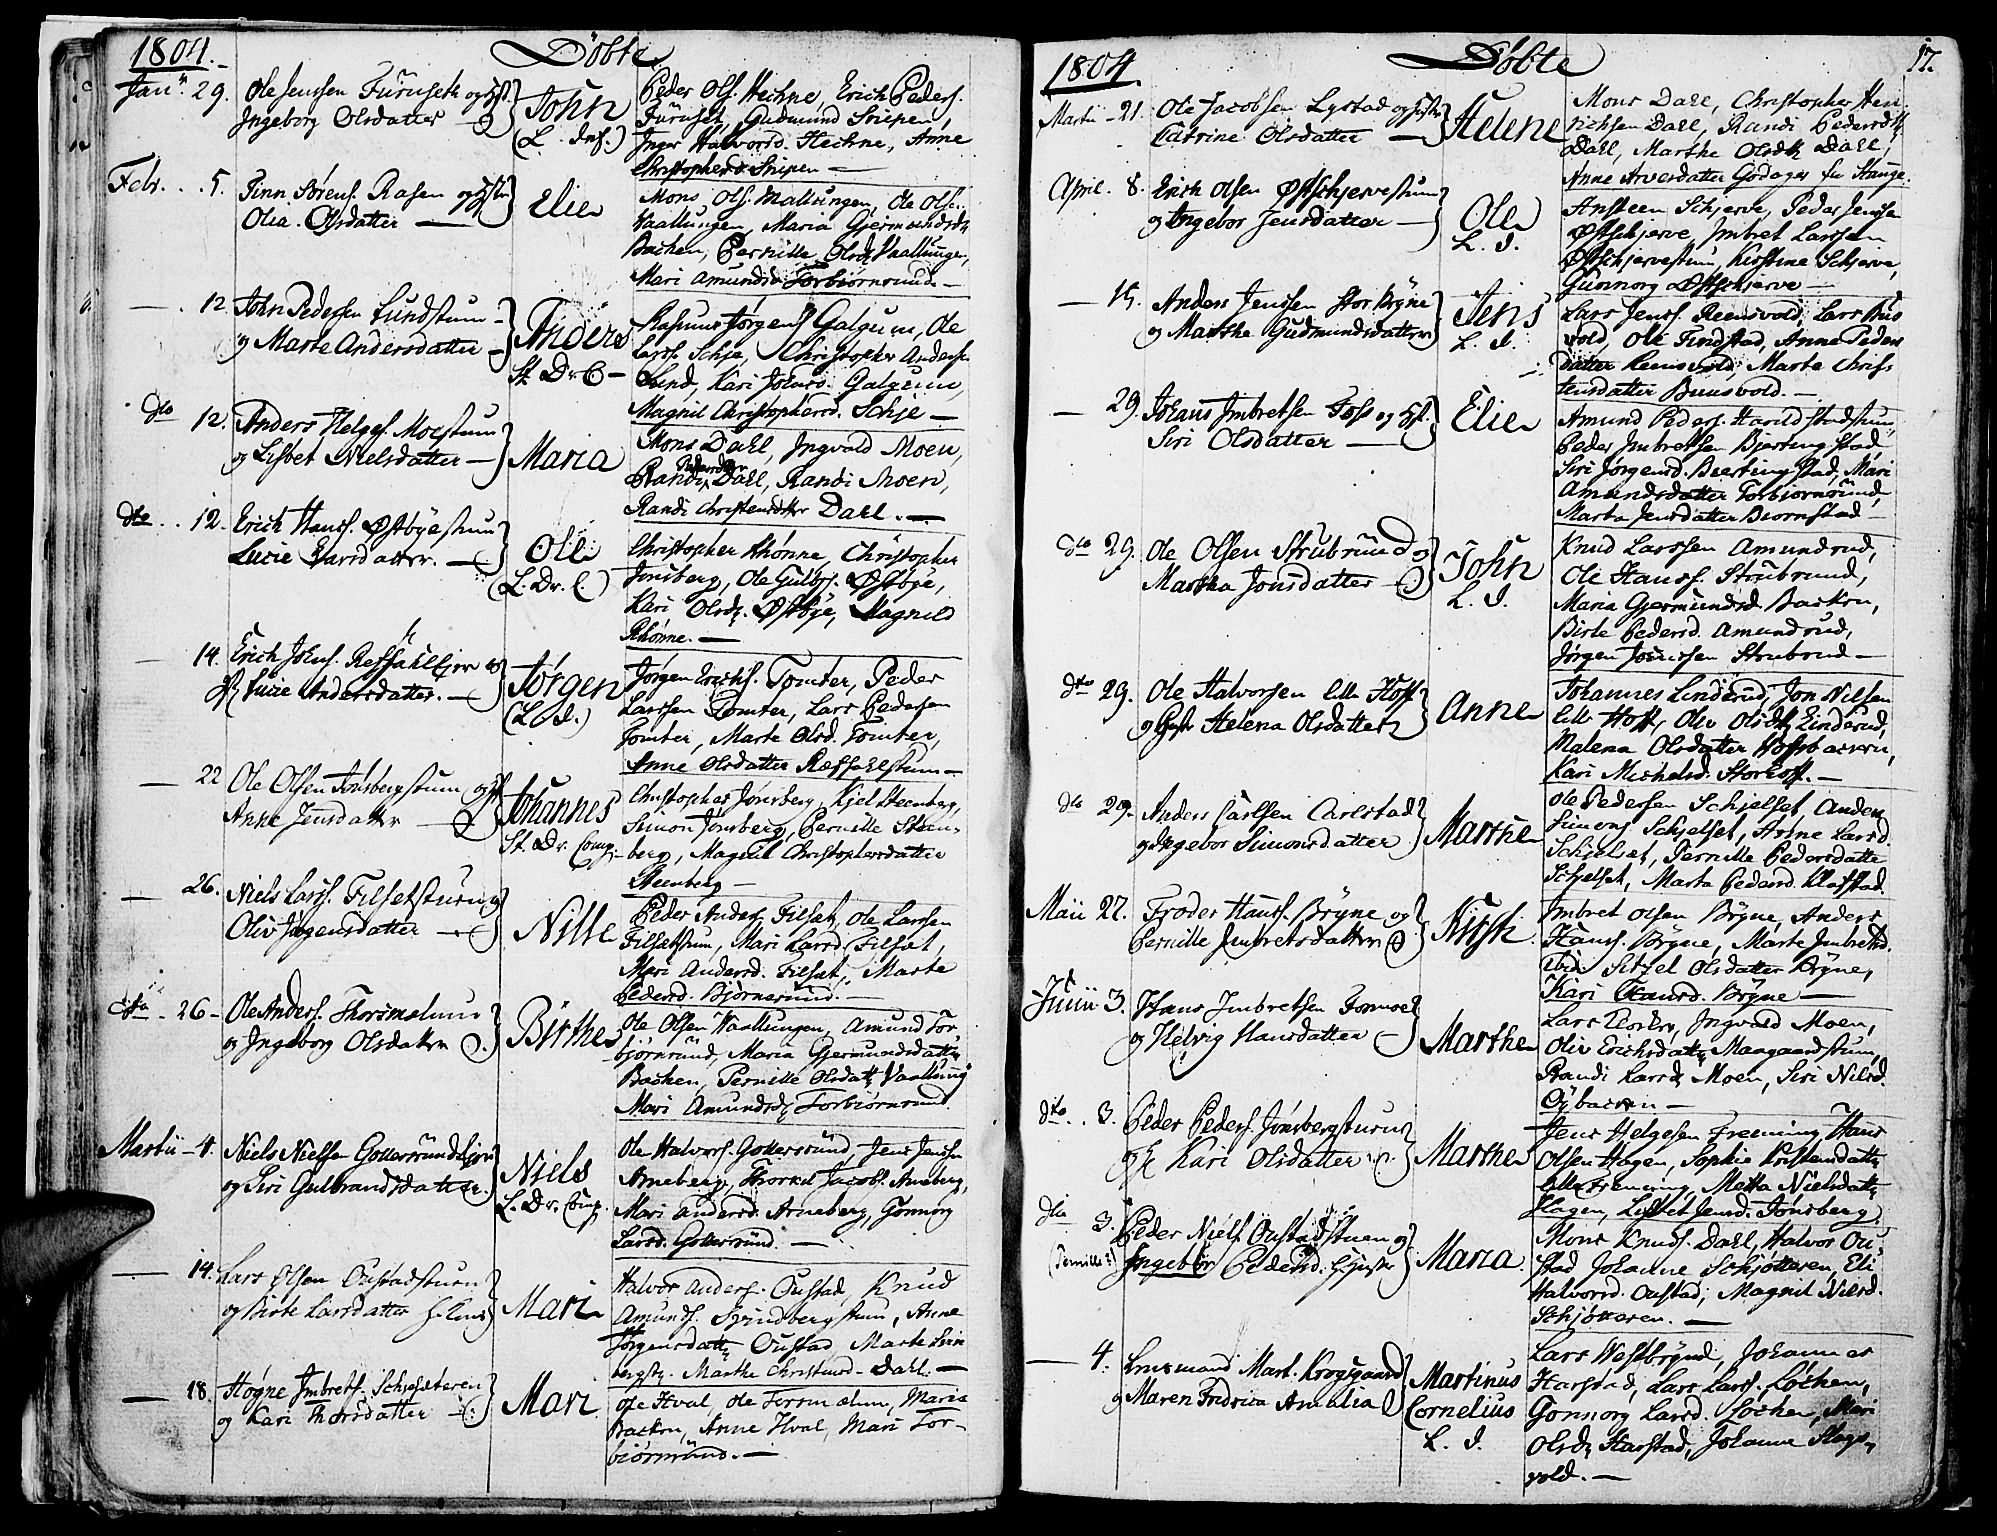 1804. Döbte
Janr 29. Ole Jenssen Furuseth og Hst.
Ingeborg Olsdatter
John
(L. Inf.)
Peder Ols. Hechne, Erich Peders.
Füruset, Gudmund Snipen,
Inger Halvorsd. Hechne, Anne
Christophersd. Snipen —
Febr. . . 5. Finn Sörens. Rasen og Hstr
Olea Olsdatter —
Elie
Mons Ols. Mallungen, Ole Ols.
Vaallungen, Maria Gjermundsdr
Bachen, Pernille Olsdr Vaallungen,
Mari Amundsdr Torbiörnsrud. —
— 12. John Pedersen Lundstum —
og Marte Andersdatter —
Anders
St. Dr. C —
Rasmus Jörgens. Galgum, Ole
Larss. Schje, Christopher Anders.
Lund, Kari Johnsd. Galgum,
Magnil Christophersd. Schje —
dto 12. Anders Helges. Moestuen
og Lisbet Nielsdatter —
Maria
Mons Dahl, Ingvald Moen,
Randi Pedersdtr Dahl, Randi Moen,
Randi Christensdtr Dahl. —
dto . . 12. Erich Hanss. Östbyestuen
Lucie Larsdatter. —
Ole
(L. Dr. C)
Christopher Rhönne, Christopher
Jonsberg, Ole Gulbs. Östbye,
Kari Olsdr. Östbye, Magnild
Rhönne. —
— 14. Erich Johns. Ressahl Ejer og
H. Lucie Andersdatter. —
Jörgen
(L. I.)
Jörgen Erichs. Tomter, Peder
Larssen Tomter, Lars Pedersen
Tomter, Marte Olsd. Tomter,
Anne Olsdatter Ressahlstum —
— 22 Ole Olsen Jönsbergstum og H
Anne Jensdatter —
Johannes
St. Dr. Comp.
Christopher Jönsberg, Kjel Steenberg,
Simon Jönsberg, Pernille Steen-
berg, Magnil Christophersdatter
Steenberg —
— 26. Niels Larss. Filsetstuen og
Oliv Jörgensdatter —
Nille
Peder Anders. Filset, Ole Larssen
Filsetstum, Mari Larsd. Filset,
Mari Andersd. Filset, Marte
Pedersd. Björnsrund. —
dto . 26 – Ole Anders. Thorsmælum
og Ingeborg Olsdatter
Birthe
Ole Olsen Vaallungen, Amund Tor
björnrüd, Maria Gjermundsdattr
Bachen, Pernille Olsdattr Vaallung
Mari Amundsdr Torbiörnsrund.
Martii – 4. Niels Nielsen Gollersründ Ejer
og Siri Gulbrandsdatter.
Niels
L. Dr. Comp.
Ole Halvors. Gollersründ, Jens Jenssen
Arneberg, Thorkel Jacobs. Arneberg,
Mari Andersd. Arneberg, Gonnorg
Larsd. Gollersründ. —
— 14. Lars Olsen Oustadstuen
og Birte Larsdatter
Mari
Halvor Anders. Oustad, Knud
Amunds. Spindbergstum, Anne
Jörgensdattr Oustad, Marte Spin
bergst, Marthe Christensd. Dahl. —
— 18. Högne Imbrets. Schjötteren
og Kari Thorsdatter
Mari
Ole Hval, Ole Torsmælum, Maria
Backen, Anne Hval, Mari Tor-
biörnründ. —
1804 Döbte 17.
Martii – 21. Ole Jacobsen Lystad og Hustr
Catrine Olsdatter —
Helene
Mons Dahl, Christopher Hen
richsen Dahl, Randi Pedersdtr
Dahl, Marthe Olsdtr Dahl,
Anne Arvesdatter Godager fra Stange.
April. 8. Erich Olsen Östschjervestum
og Ingebor Jensdatter —
Ole
L. I.
Ansteen Schjerve, Peder Jenssen
Östschjerve Imbret Larssen
Östschjervestum, Kirstine Schjerve,
Gunnorg Östschjerve —
— 15. Anders Jenssen Stor Bryne
og Marthe Gudmundsdatter
Jens
L. I.
Lars Jenss. Reensvold, Lars Bus
vold, Ole Findstad, Anne Peders
datter Reensvold, Marte Chris
tensdatter Buusvold. —
— 29. Johans Imbretsen Foss og Hst.
Siri Olsdatter —
Elie
Amund Peders. Harildstadstum,
Peder Imbretsen Bjertingstad
Siri Jörgensd. Biertingstad, Mari
Amundsdatter Torbiörnsründ,
Marta Jensdatter Biörnstad —
dto 29. Ole Olsen Strubründ og
Martha Jonsdatter
John
L. I.
Knud Larssen Amundrud,
Ole Hanss. Strubrund,
Maria Gjermundsd. Backen,
Birte Pedersd. Amundrud,
Jörgen Jonssen Strubrud —
dto 29. Ole Halvorsen Lille Hoff
og H. Helena Olsdatter
Anne
Johannes Linderud, Jon Nilsen
Lille Hoff, Oliv Olsdtr Linderud,
Malena Olsdatter Hoffsbacken,
Kari Michelsd. Storhoff. —
dto 29. Anders Carlsen Carlstad
og Ingebor Simonsdatter
Marthe
Ole Pedersen Schjelset, Anders
Simons. Schjelset, Anne Larsd.
Schjelset, Pernille Pedersdatter
Schjelset, Marta Pedersd. Klafstad.
Maii 27. Froder Hanss. Bryne og
Pernille Imbretsdatter
Kirsti
Imbret Olsen Bryne, Anders
Hanss. Bryne, Marte Imbretsd.
Ibid Sitzel Olsdatter Bryne,
Kari Hansd. Bryne —
Junii 3. Hans Imbretsen
og Helvig Hansdatter
Marthe
Lars Ingvald Moen,
Oliv Erichsdattr Maagaardstum,
Randi Larsd. Moen, Siri Nilsd.
Öybacken —
dto . . 3. Peder Peders. Jönsbergstuen
og H. Kari Olsdatter
Marthe
Jens Helgesen Freening, Hans
Olsen Hagen, Sophie Kristensdattr
Lille Freening, Metta Nielsdattr
Hagen, Lisbet Jensd. Jönsberg
dto 3. Peder Niels. Oustadstuen og
(Pernille?) Ingebor Pedersd. Hustr
Maria
Mons Knuds. Dahl, Halvor Ou
stad Johanne Schjötteren, Eli
Halvorsd. Oustad, Magnil Nielsd.
Schjötteren. —
— 4. Lensmand Mart. Krogsgaard
og Maren Fredrica Amalia
Martinus
Cornelius
L. I.
Lars Westbrynd, Johannes
Harstad, Lars Larss. Lochen,
Gonnorg Larsd. Lochen, Mari
Olsdr Harstad, Johanne Slags-
vold. —